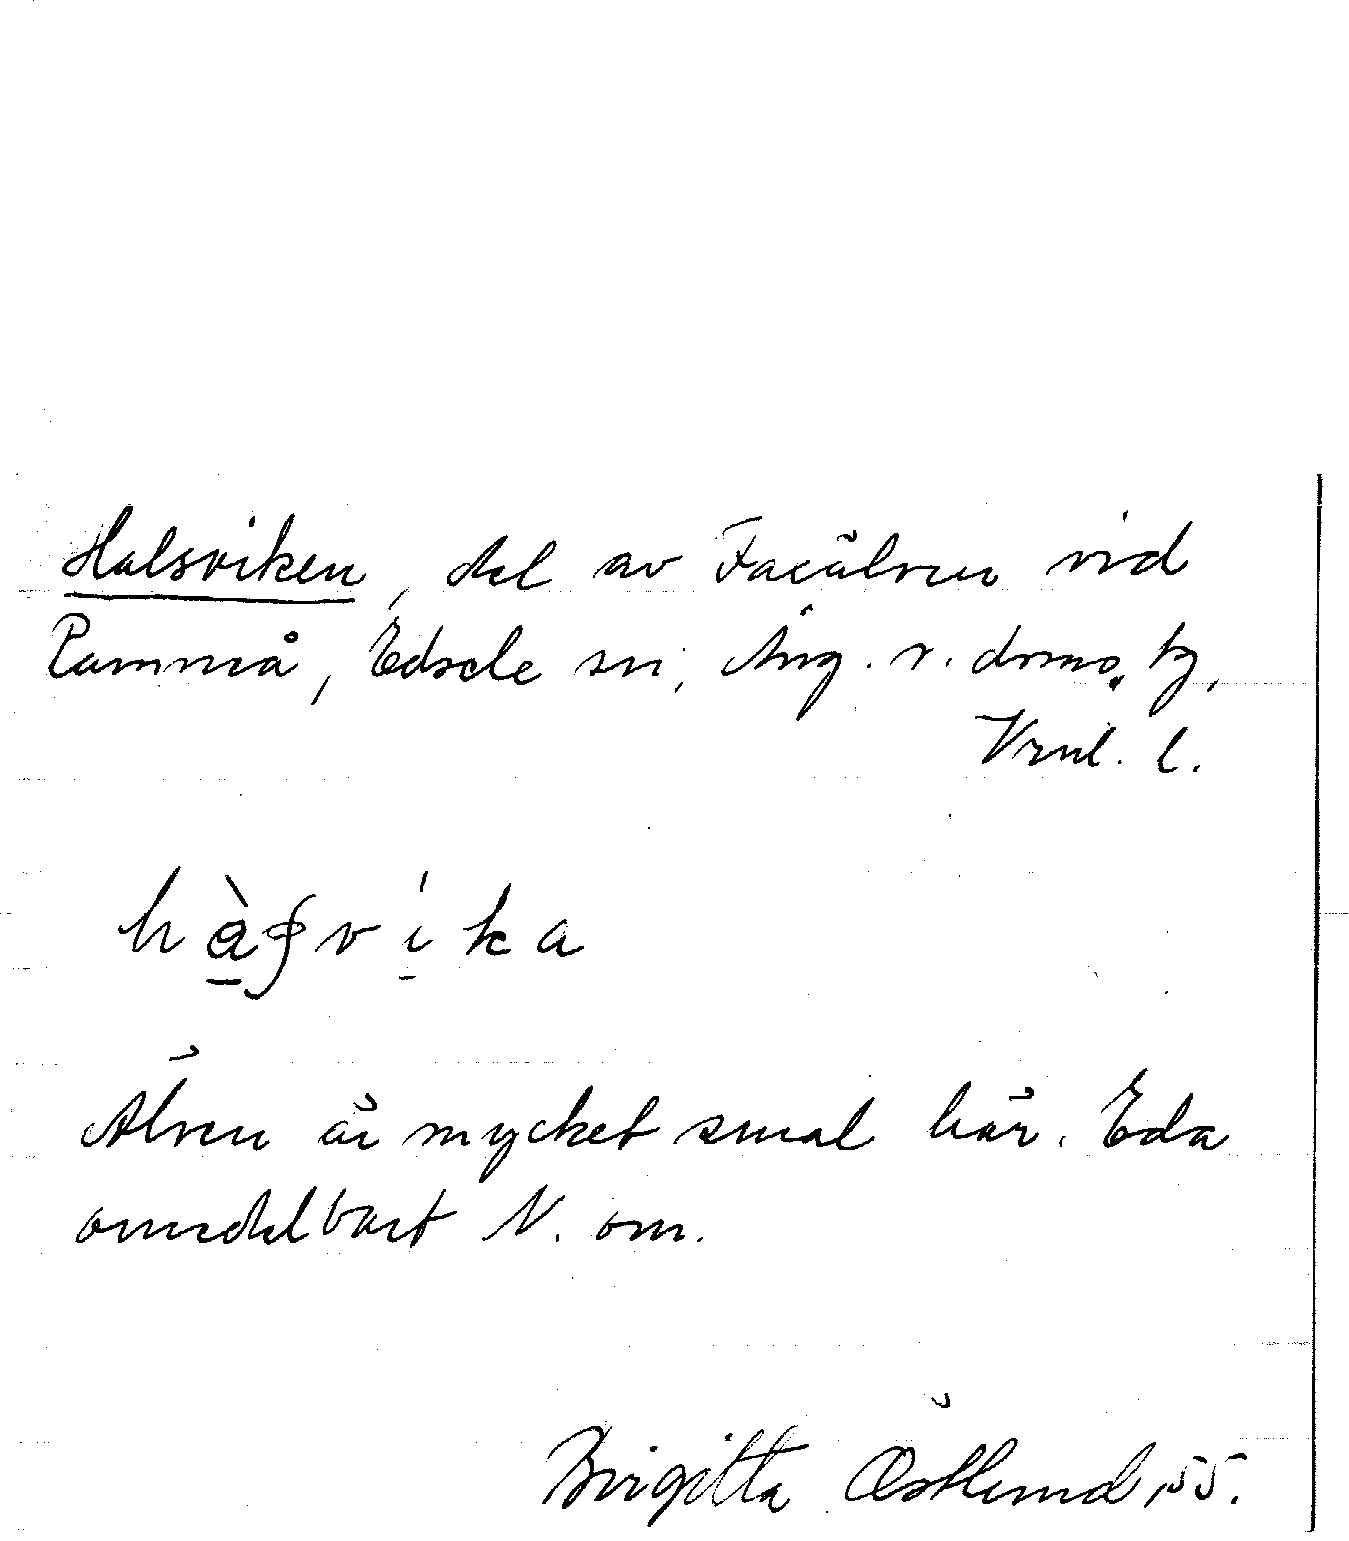 Halsviken, del av Faxälven vid
Edsele sn, Ång. v. doms. tg,
Vrnl. l.
hàʂvi̱ka
Älven är mycket smal här. Eda
omedelbart N. om.
Birgitta Östlund, 55.